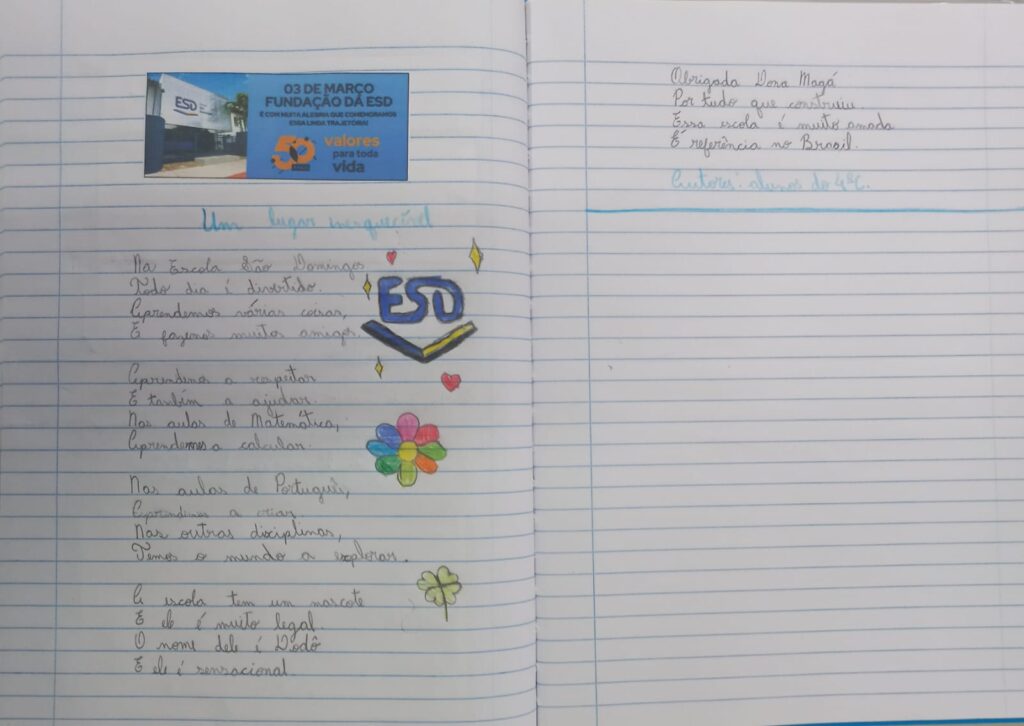 ESD
03 DE MARÇO
FUNDAÇÃO DA ESD
É COM MUITA ALEGRIA QUE COMEMORAMOS
ESSA LINDA TRAJETÓRIA!
50
valores
para toda
vida
Um lugar inesquecível
Na Escola São Domingos
Todo dia é divertido.
Aprendemos várias coisas,
E fazemos muitos amigos.
ESD
Aprendemos a respeitar
E também a ajudar.
Nas aulas de Matemática,
Aprendemos a calcular.
Nas aulas de Português,
Aprendemos a criar
Nas outras disciplinas,
Temos o mundo a explorar.
A escola tem um mascote
E ele é muito legal.
O nome dele é Dodô
E ele é sensacional.
Obrigada Dona Magá
Por tudo que construiu.
Essa escola é muito amada
É referência no Brasil.
Autores: alunos do 4ºC.